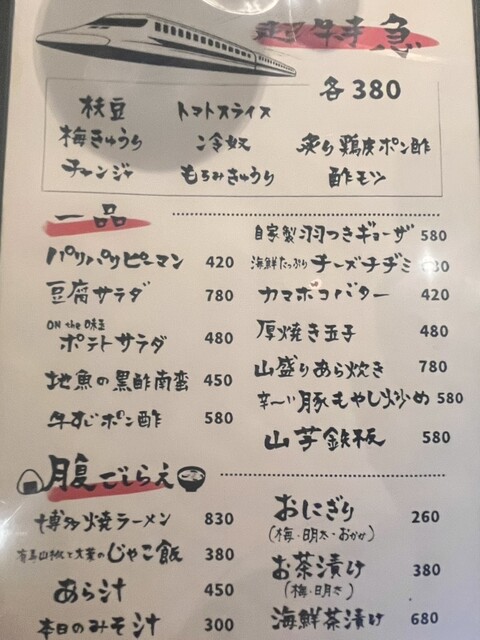 超特急
各380
枝豆 トマトスライス
梅きゅうり 冷奴 炙り鶏皮ポン酢
チャンジャ もろみきゅうり 酢モツ
一品
パリパリピーマン 420
豆腐サラダ 780
ON the 味玉
ポテトサラダ 480
地魚の黒酢南蛮 450
牛すじポン酢 580
自家製羽つきギョーザ 580
海鮮たっぷりチーズチヂミ
カマホコバター 420
厚焼き玉子 480
山盛りあら炊き 780
辛〜い豚もやし炒め 580
山芋鉄板 580
腹ごしらえ
博多焼ラーメン 830
有馬山椒と大葉のじゃこ飯 380
あら汁 450
本日のみそ汁 300
おにぎり 260
(梅・明太・おかか)
お茶漬け 380
(梅・明太)
海鮮茶漬け 680